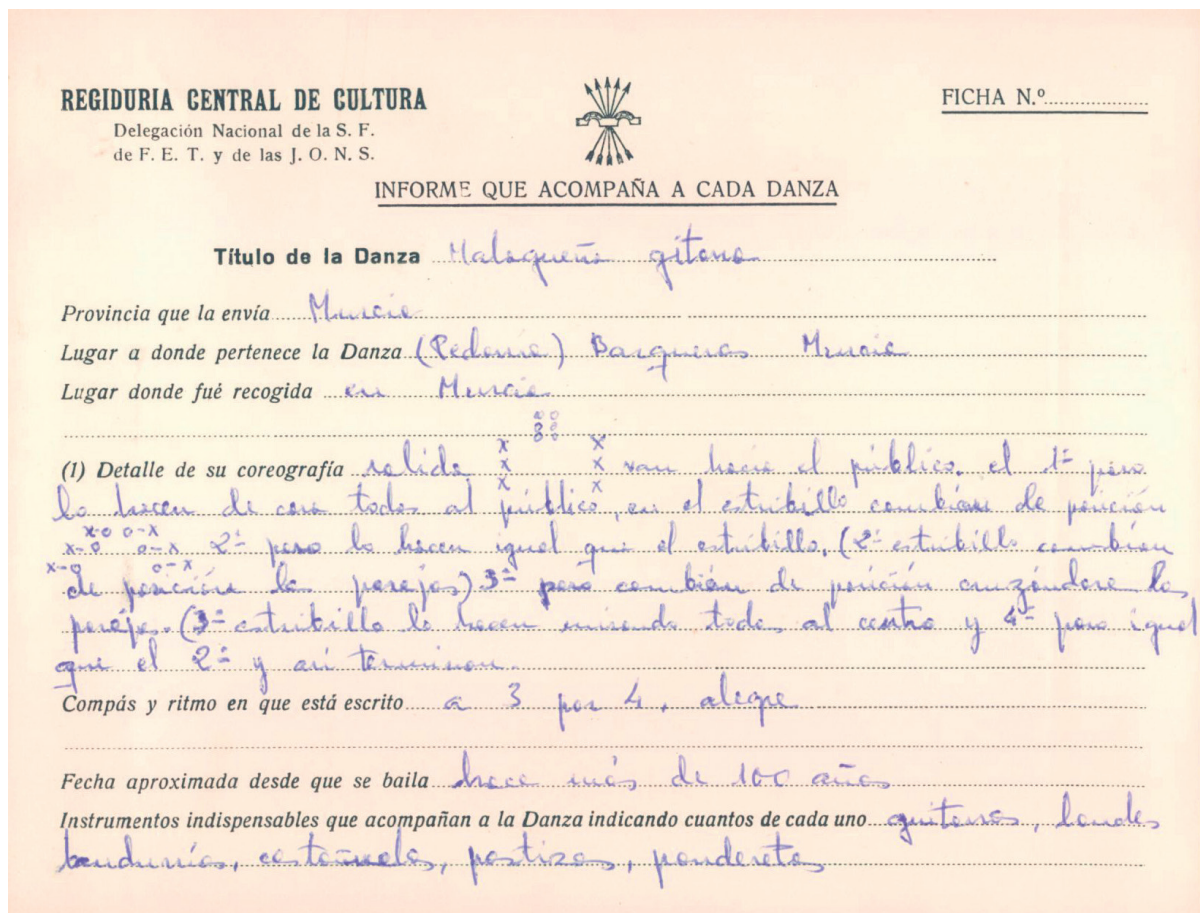 REGIDURIA CENTRAL DE CULTURA
Delegación Nacional de la S. F.
de F. E. T. y de las J. O. N. S.
FICHA N.º
INFORME QUE ACOMPAÑA A CADA DANZA
Título de la Danza Malagueña gitana
Provincia que la envía Murcia
Lugar a donde pertenece la Danza (Pedania) Barqueros Murcia
Lugar donde fué recogida en Murcia
(1) Detalle de su coreografía salida x x x x x x van hacia el público. el 1º paso
lo hacen de cara todos al público, en el estribillo cambian de posición
x-o o-x x-o o-x x-o o-x 2º paso lo hacen igual que el estribillo. (2º estribillo cambian
de posición las parejas) 3º paso cambian de posición cruzándose las
parejas. (3º estribillo lo hacen mirando todos al centro y 4º paso igual
que el 2º y asi terminan.
Compás y ritmo en que está escrito a 3 por 4, alegre
Fecha aproximada desde que se baila hace más de 100 años
Instrumentos indispensables que acompañan a la Danza indicando cuantos de cada uno guitarras, laudes
bandurrias, castañuelas, postizas, panderetas